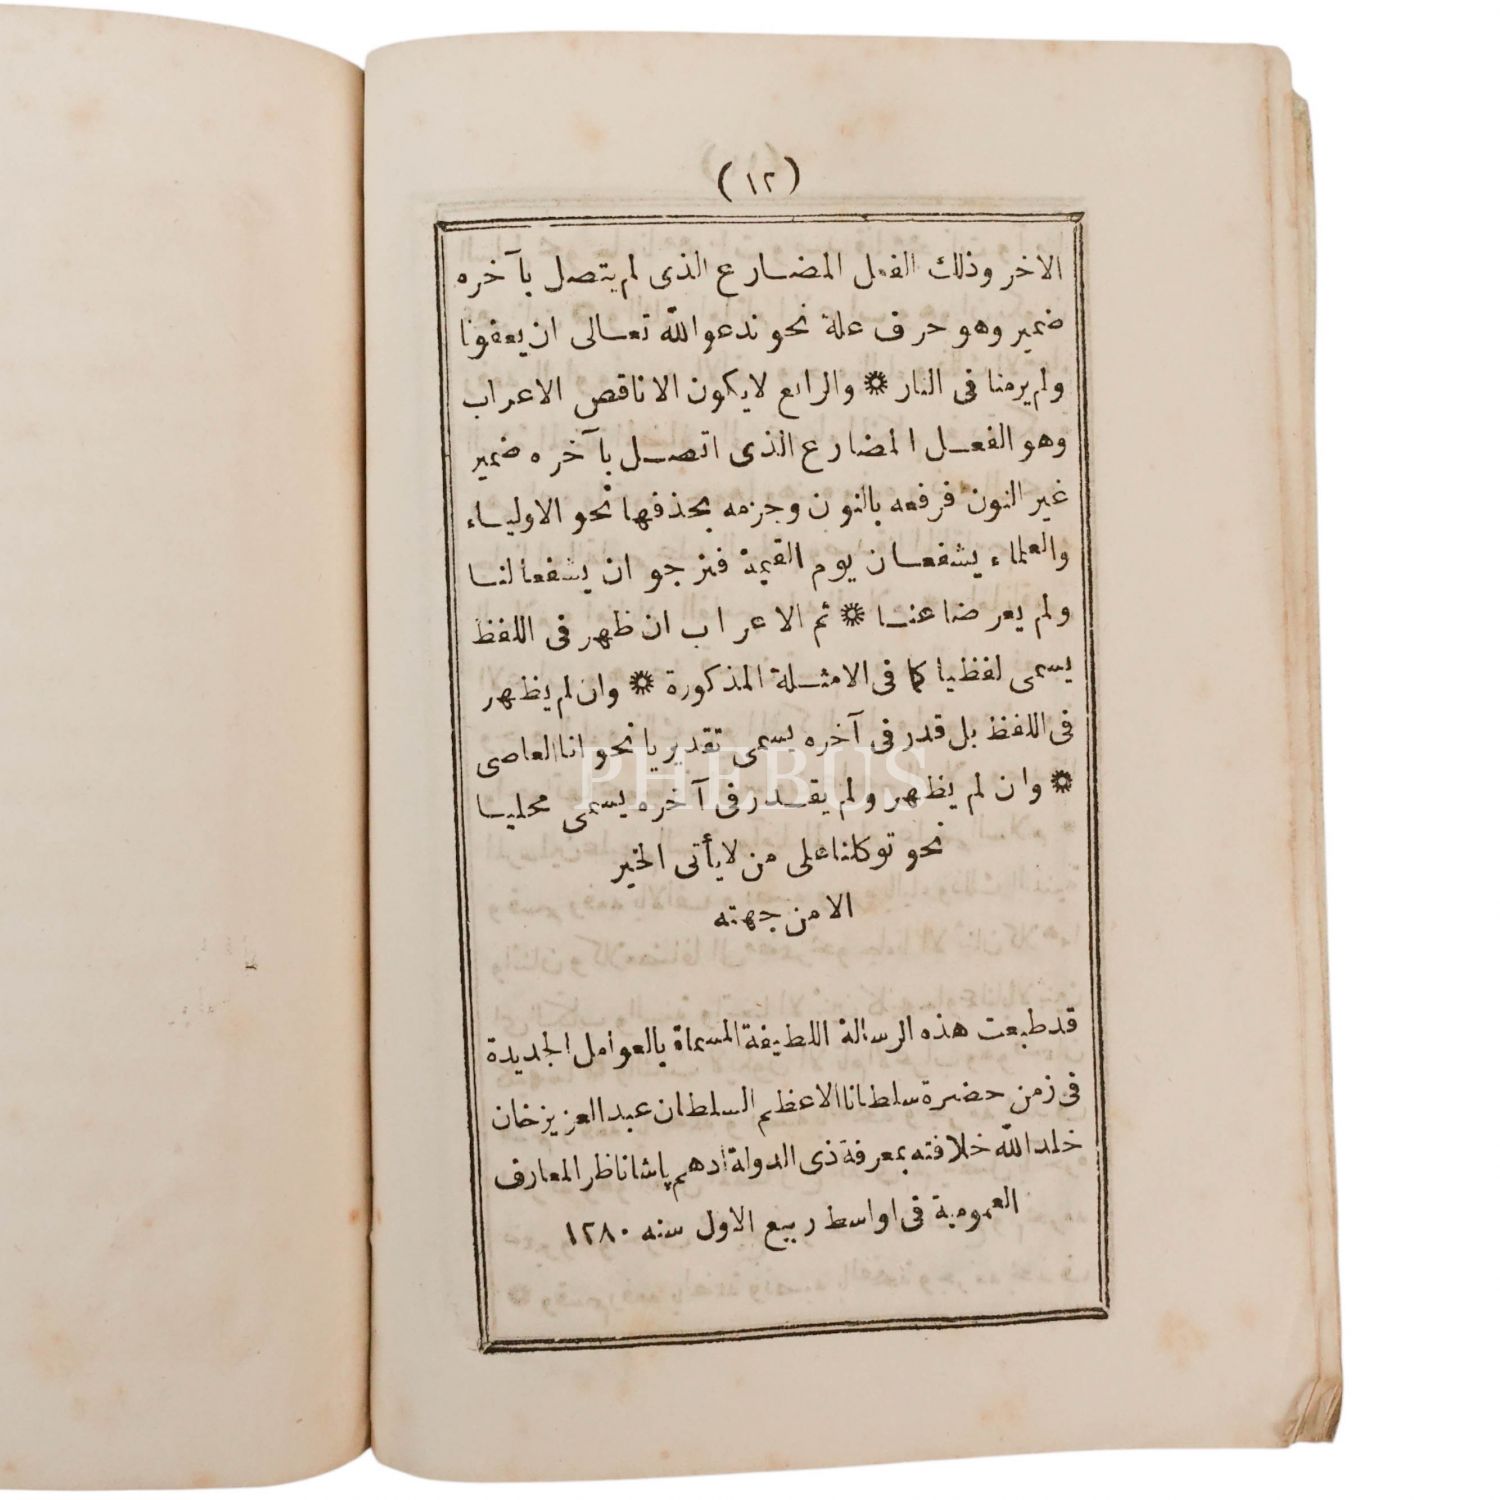 (١٢)
الاخر وذلك الفعل المضارع الذى لم يتصل بآخره
ضمير وهو حرف علة نحو ندعو الله تعالى ان يعفونا
ولم يرمنا فى النار * والرابع لايكون الا ناقص الاعراب
وهو الفعل المضارع الذى اتصل بآخره ضمير
غير النون فرفعه بالنون وجزمه بحذفها نحو الاولياء
والعلماء يشفعان يوم القيمة فنرجو ان يشفعا لنا
ولم يعرضا عنا * ثم الاعراب ان ظهر فى اللفظ
يسمى لفظيا كما فى الامثلة المذكورة * وان لم يظهر
فى اللفظ بل قدر فى آخره يسمى تقديريا نحو انا العاصى
* وان لم يظهر ولم يقدر فى آخره يسمى محليا
نحو توكلنا على من لا يأتى الخير
الا من جهته
قد طبعت هذه الرسالة اللطيفة المسماة بالعوامل الجديدة
فى زمن حضرة سلطانا الاعظم السلطان عبد العزيز خان
خلد الله خلافته بمعرفة ذى الدولة ادهم پاشا ناظر المعارف
العمومية فى اواسط ربيع الاول سنه ١٢٨٠
PHEBUS